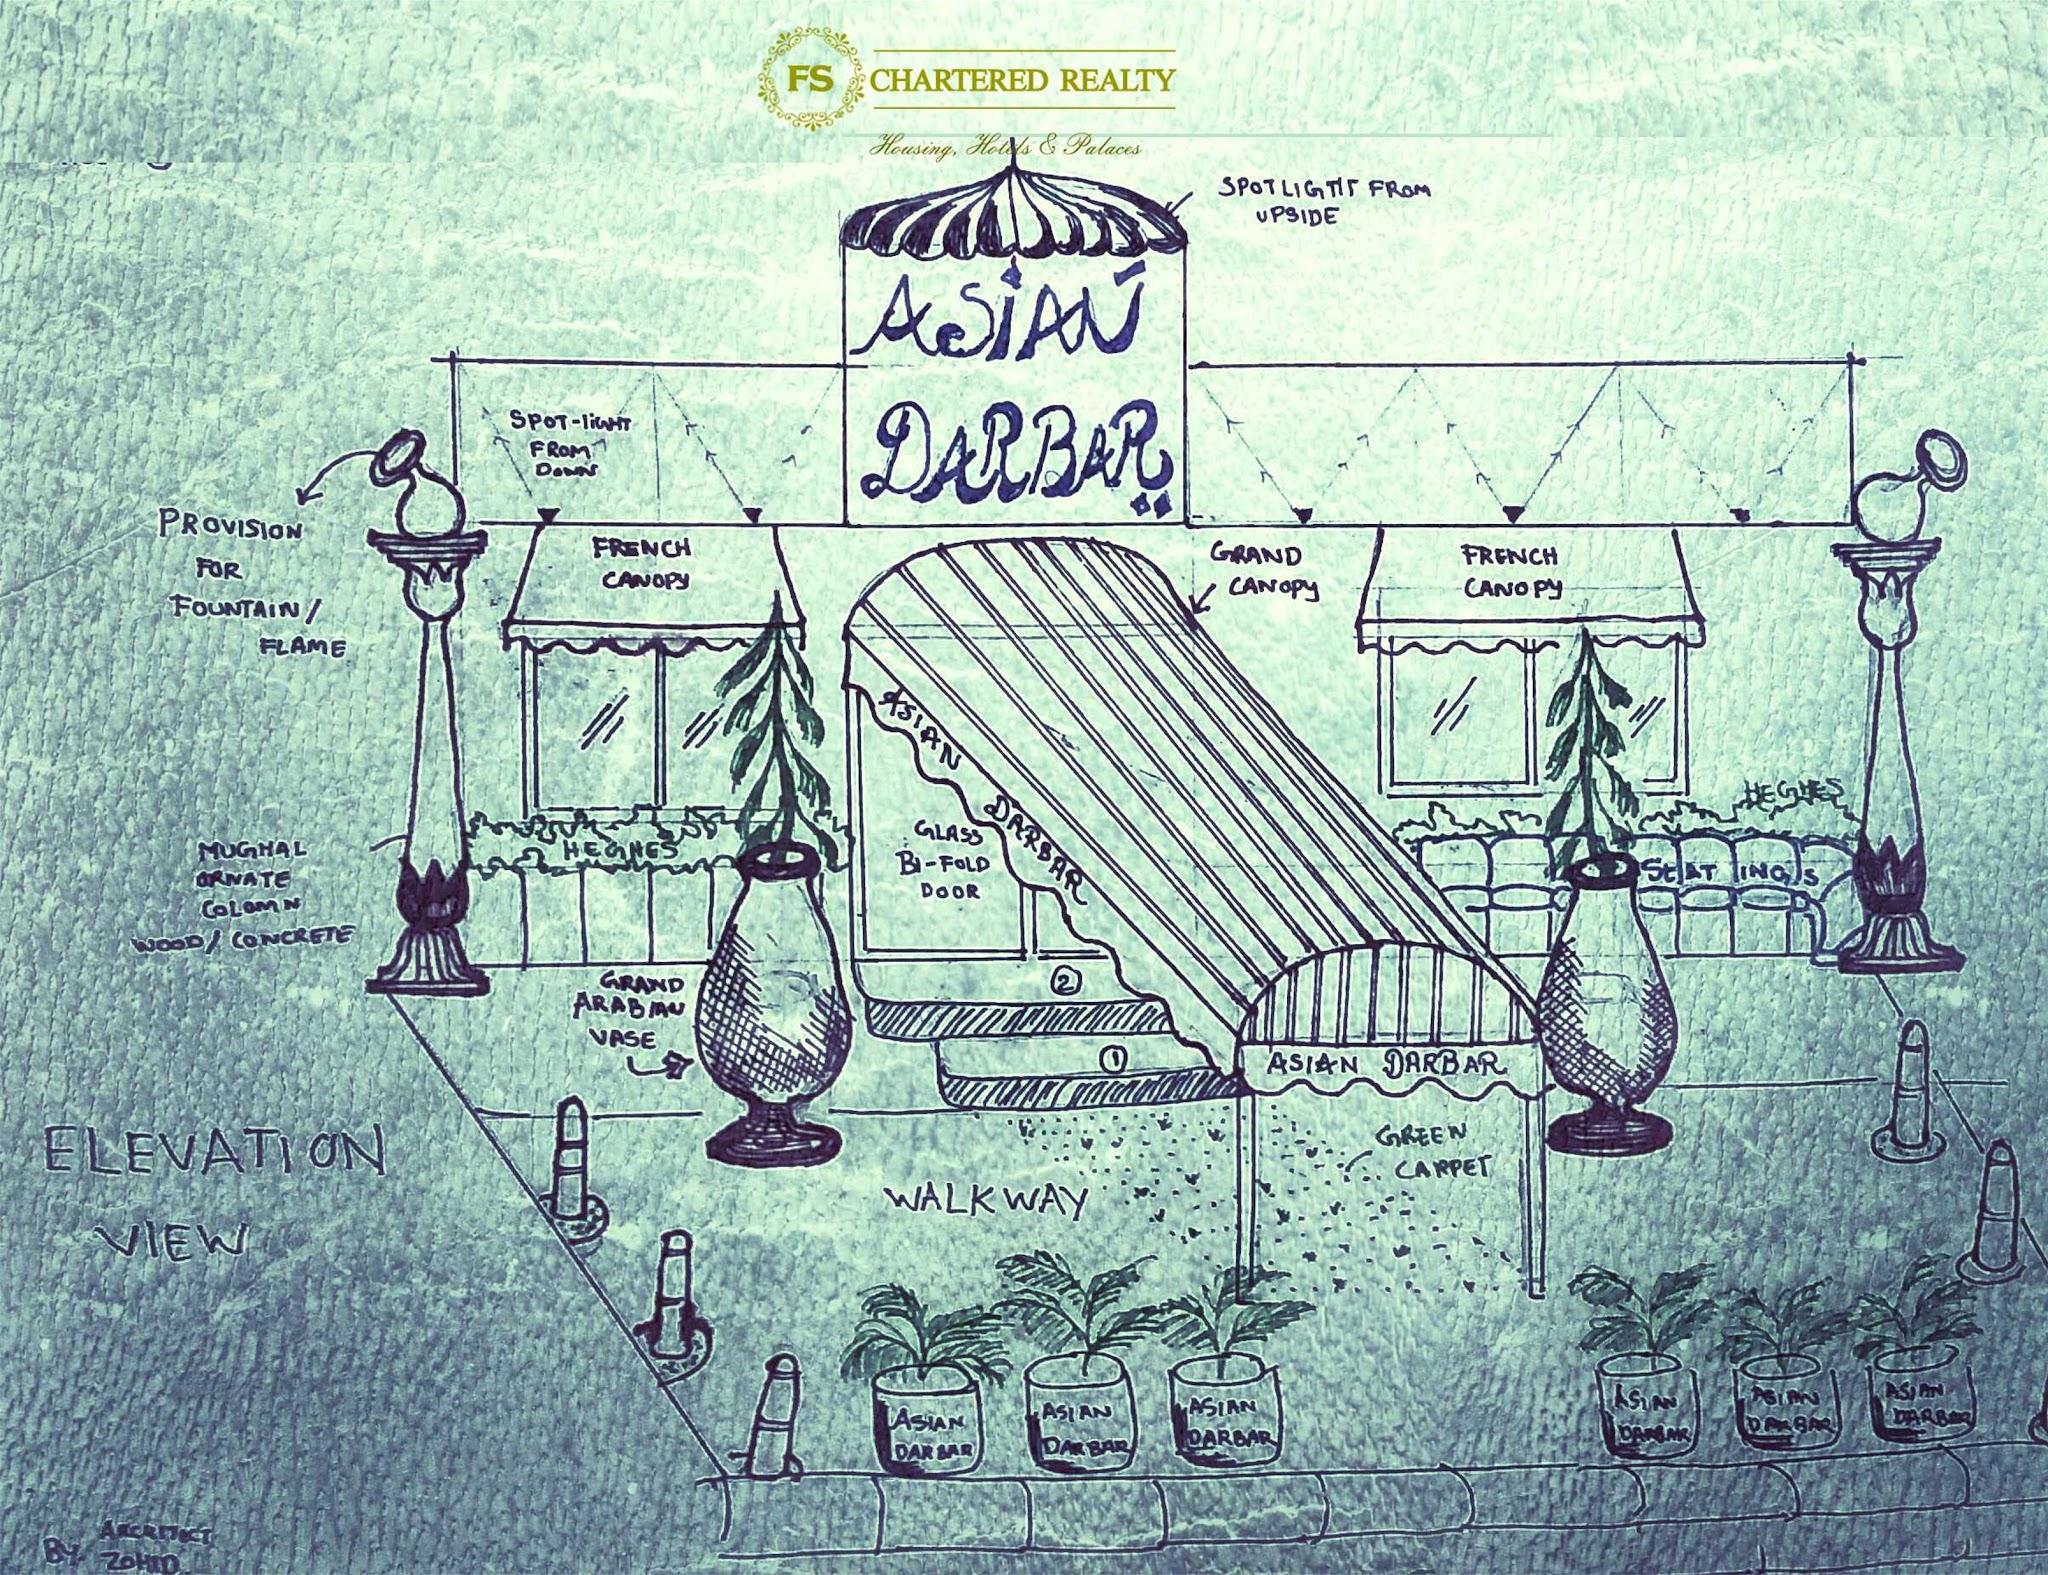 FS
CHARTERED REALTY
Housing, Hotels & Palaces
SPOTLIGHT FROM
UPSIDE
ASIAN
DARBAR
SPOT-LIGHT
FROM
DOWN
PROVISION
FOR
FOUNTAIN/
FLAME
FRENCH
CANOPY
GRAND
CANOPY
FRENCH
CANOPY
ASIAN DARBAR
GLASS
BI-FOLD
DOOR
HEGHES
HEGHES
SEATINGS
MUGHAL
ORNATE
COLOMN
WOOD/CONCRETE
GRAND
ARABIAN
VASE
2
1
ASIAN DARBAR
GREEN
CARPET
WALKWAY
ELEVATION
VIEW
ASIAN
DARBAR
ASIAN
DARBAR
ASIAN
DARBAR
ASIAN
DARBAR
ASIAN
DARBAR
ASIAN
DARBAR
BY ARCHITECT